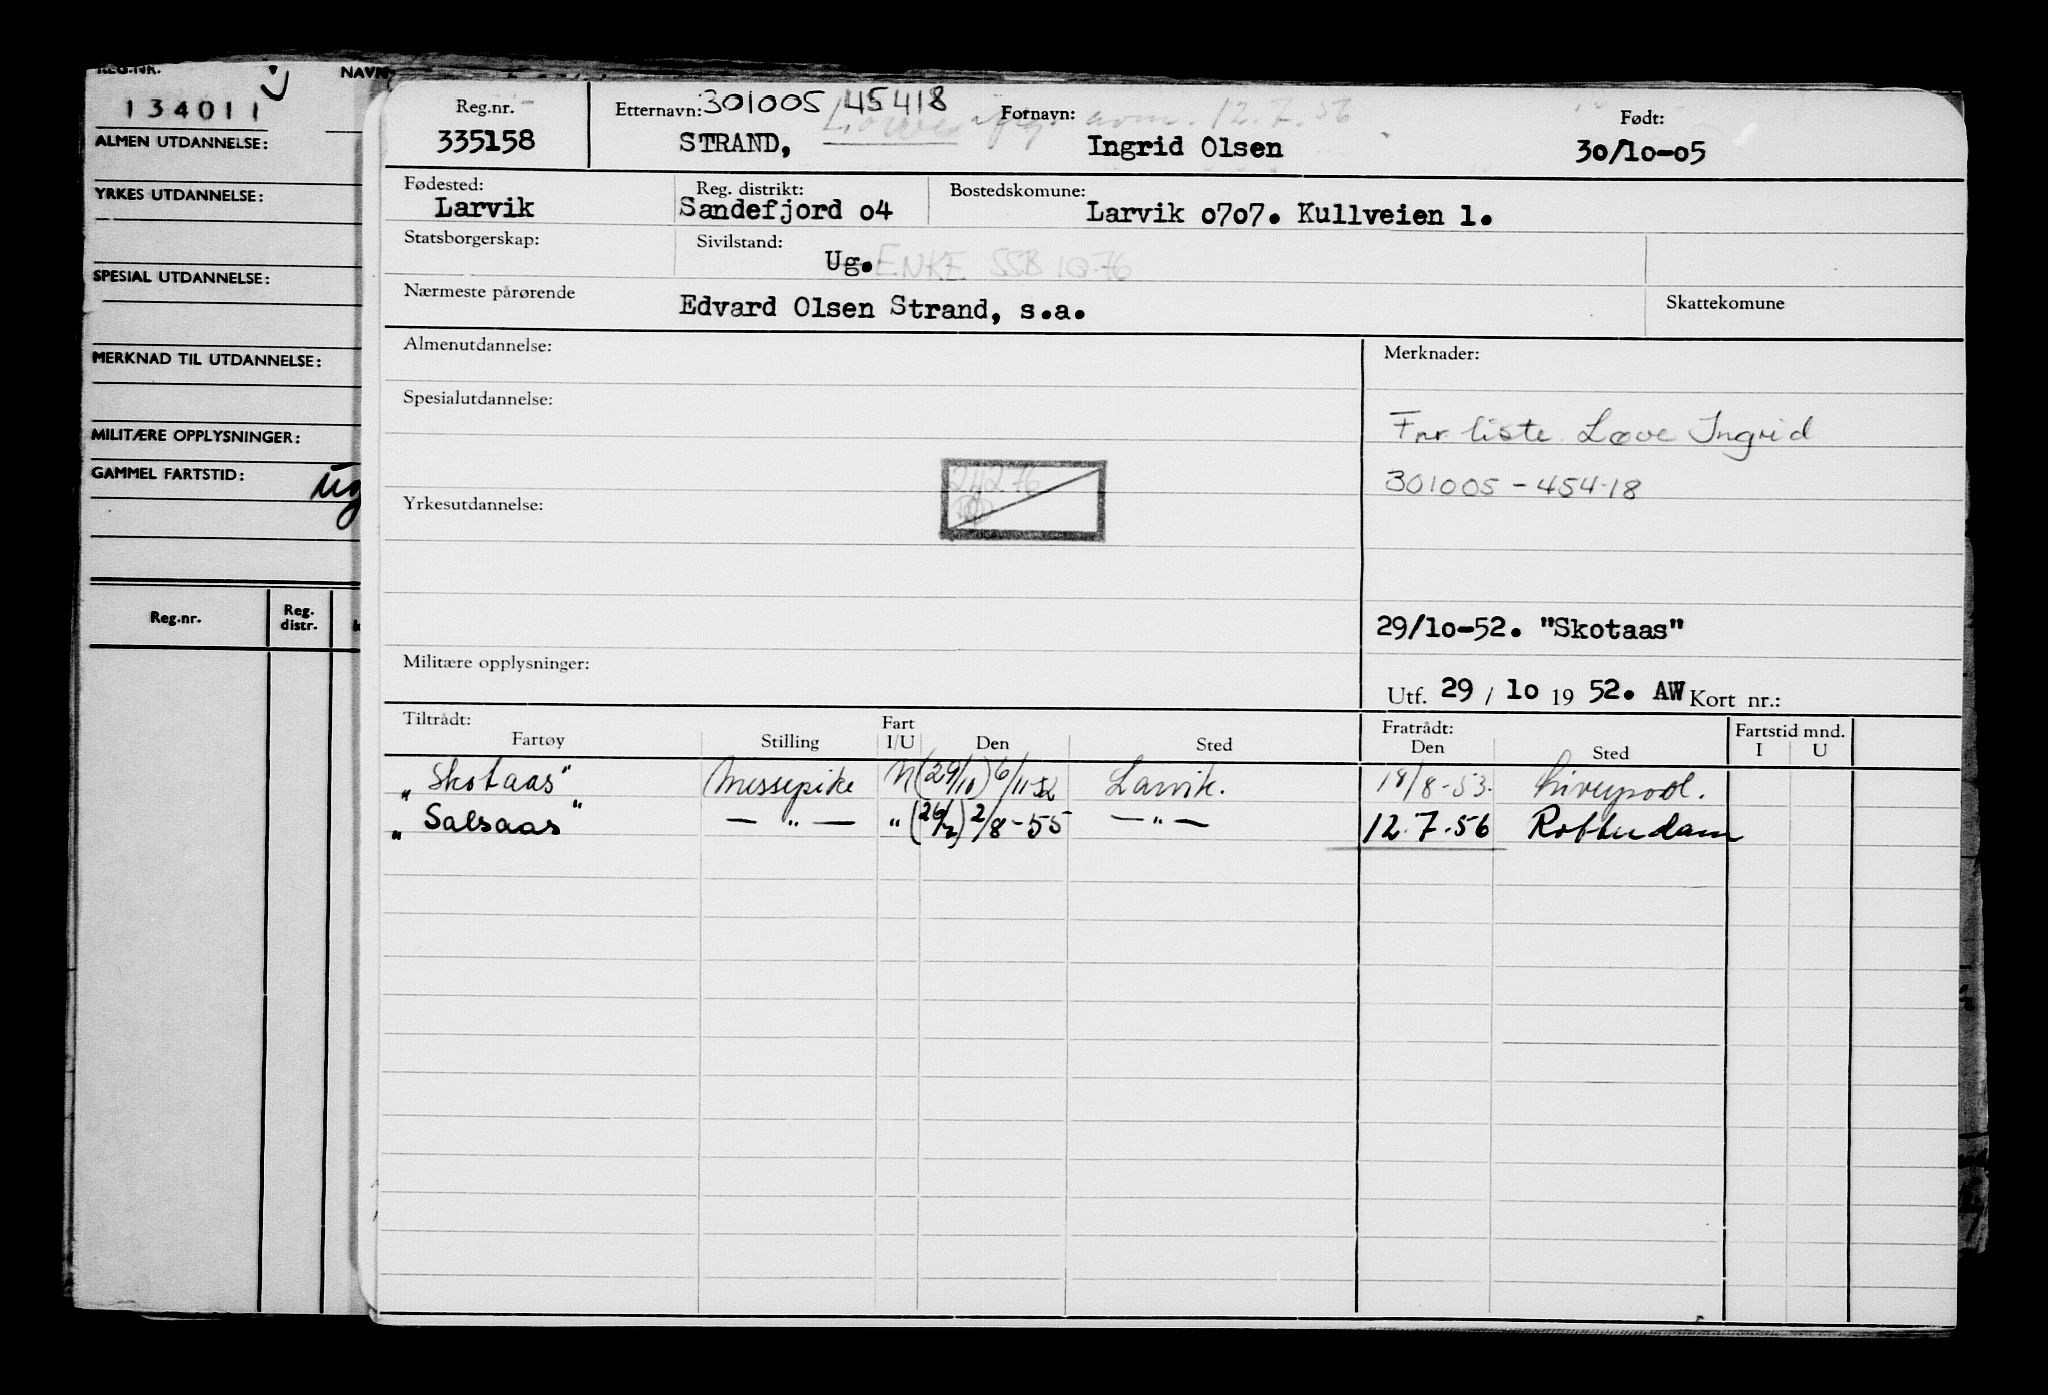 REG.NR.
NAVN
134011
ALMEN UTDANNELSE:
YRKES UTDANNELSE:
SPESIAL UTDANNELSE:
MERKNAD TIL UTDANNELSE:
MILITÆRE OPPLYSNINGER:
GAMMEL FARTSTID:
ug
Reg.nr.
Reg. distr.
Reg.nr. Etternavn: 301005 45418 Fornavn: 12.7.56 Født:
335158 STRAND, Ingrid Olsen 30/10-05
Fødested: Reg. distrikt: Bostedskomune:
Larvik Sandefjord o4 Larvik o7o7. Kullveien 1.
Statsborgerskap: Sivilstand:
Ug. ENKE SSB 10.76
Nærmeste pårørende Edvard Olsen Strand, s.a. Skattekomune
Almenutdannelse: Merknader:
Spesialutdannelse:
Fnr liste Løve Ingrid
301005-45418
Yrkesutdannelse:
29/1o-52. "Skotaas"
Militære opplysninger:
Utf. 29 / 1o 19 52. AW Kort nr.:
Tiltrådt: Fart Fratrådt: Fartstid mnd.
Fartøy Stilling I/U Den Sted Den Sted I U
"Skotaas" Messepike N (29/10) 6/11-52 Larvik. 18/8-53. Liverpool.
"Salsaas" — " — " (26/7) 2/8-55 — " — 12.7.56 Rotterdam